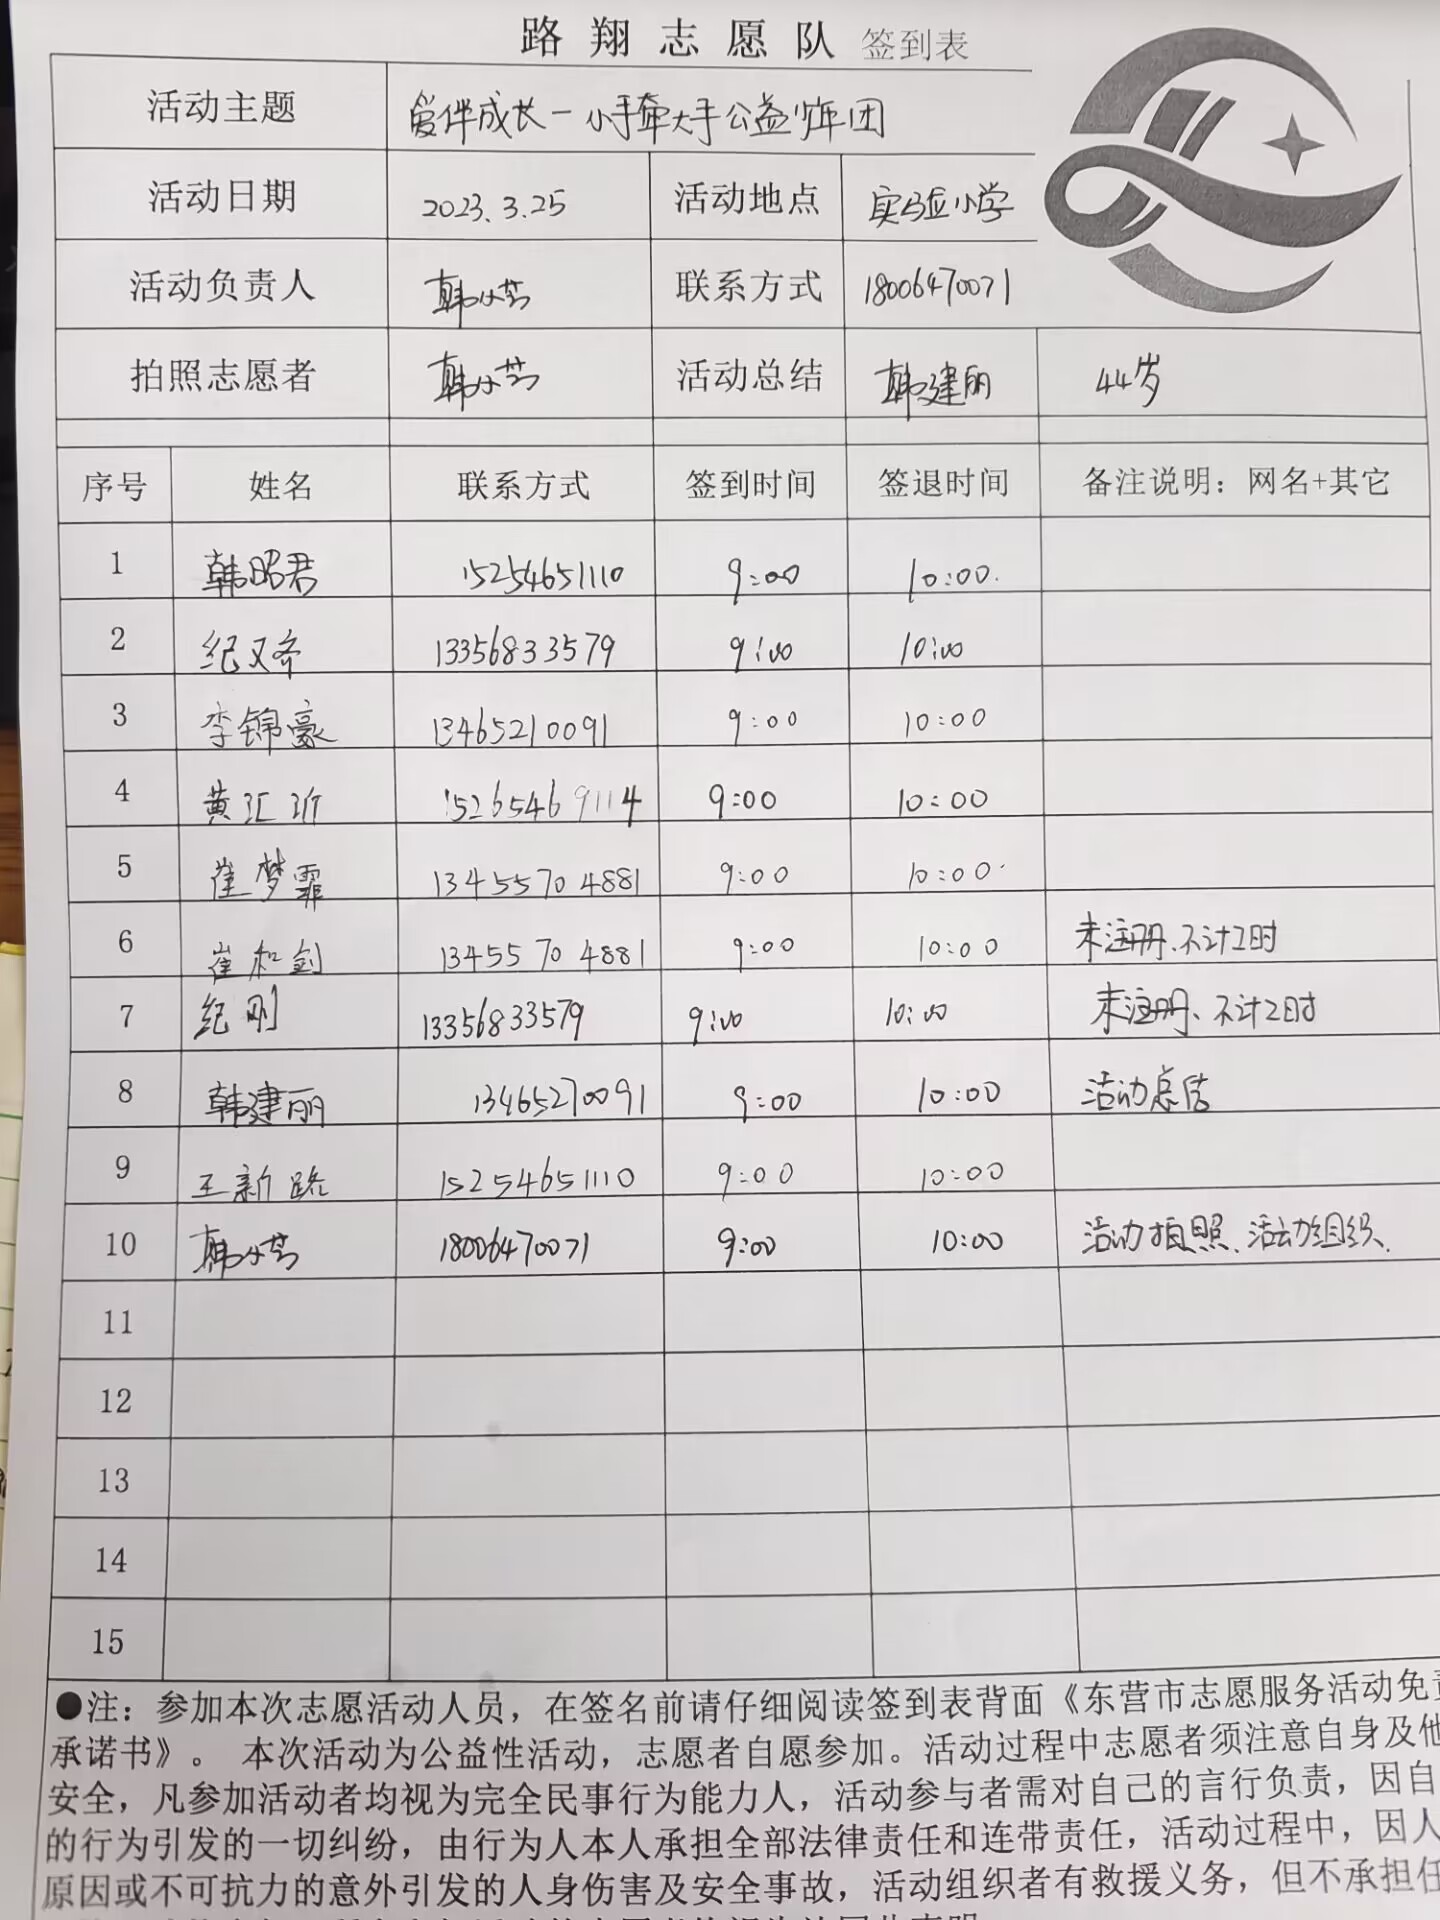 路翔志愿队 签到表
活动主题 爱伴成长一小手牵大手公益少年团
活动日期 2023.3.25 活动地点 实验小学
活动负责人 韩小芸 联系方式 18006470071
拍照志愿者 韩小芸 活动总结 韩建丽 44岁
序号 姓名 联系方式 签到时间 签退时间 备注说明：网名+其它
1 韩昭君 15254651110 9:00 10:00.
2 纪又齐 13356833579 9:00 10:00
3 李锦豪 13465210091 9:00 10:00
4 黄汇圻 15265469114 9:00 10:00
5 崔梦霏 13455704881 9:00 10:00
6 崔和剑 13455704881 9:00 10:00 未注册、不计工时
7 纪刚 13356833579 9:00 10:00 未注册、不计工时
8 韩建丽 13465270091 9:00 10:00 活动总结
9 王新路 15254651110 9:00 10:00
10 韩小芸 18006470071 9:00 10:00 活动拍照、活动组织.
11
12
13
14
15
●注：参加本次志愿活动人员，在签名前请仔细阅读签到表背面《东营市志愿服务活动免责
承诺书》。 本次活动为公益性活动，志愿者自愿参加。活动过程中志愿者须注意自身及他
安全，凡参加活动者均视为完全民事行为能力人，活动参与者需对自己的言行负责，因自
的行为引发的一切纠纷，由行为人本人承担全部法律责任和连带责任，活动过程中，因人
原因或不可抗力的意外引发的人身伤害及安全事故，活动组织者有救援义务，但不承担任